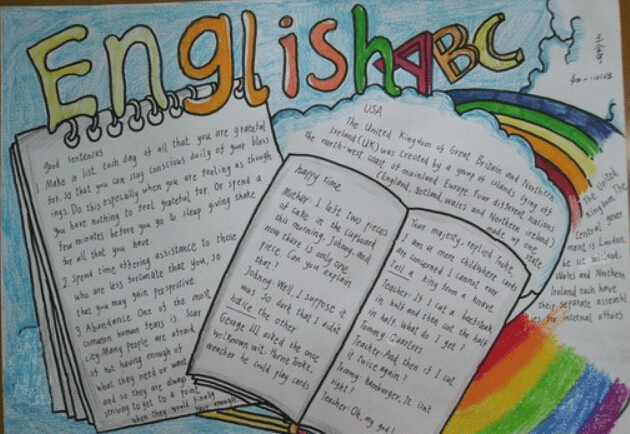 English ABC
good sentences
1 Make a list each day of all that you are grateful
for. so that you can stay conscious daily of your bless
ings. Do this especially when you are feeling as though
you have nothing to feel grateful for. Or spend a
few minutes before you go to sleep giving thanks
for all that you have.
2. spend time offering assistance to those
who are less fortunate that you, so
that you may gain perspective.
3. Abundance One of the most
common human fears is scar
city Many people are afraid
of not having enough of
what they need or want
and so they are always
striving to get to a point
when they would finally
have enough
USA
The United Kingdom of Great Britain and Northern
Ireland (UK) was created by a group of islands lying off
the north-west coast of mainland Europe. Four different nations
(England, Scotland, wales and Northern ireland)
made up one
state
happy time
Mother: I left two pieces
of cake in the cupboard
this morning, Johnny, And
now there is only one
piece. Can you explain
that?
Johnny: Well, I suppose it
was so dark that I didn't
notice the other
George III, asked the once
well known wit.
weather he could play cards
Your majesty, replied Tooke,
I am a mere child where cards
are concerned I cannot even
tell a king from a knave
Teacher: If I cut a beefsteak
in half and then cut the half
in half. What do I get?
Tommy: Quarters.
Teacher: And then if I cut
it twice again?
Tommy: Hamburger, It isn't
right!
Teacher: Oh, my god!
The United
Kingdom The
Central gover
ment is London,
Wales and Northern
Ireland each have
their separate assembl
ies for internal affairs.